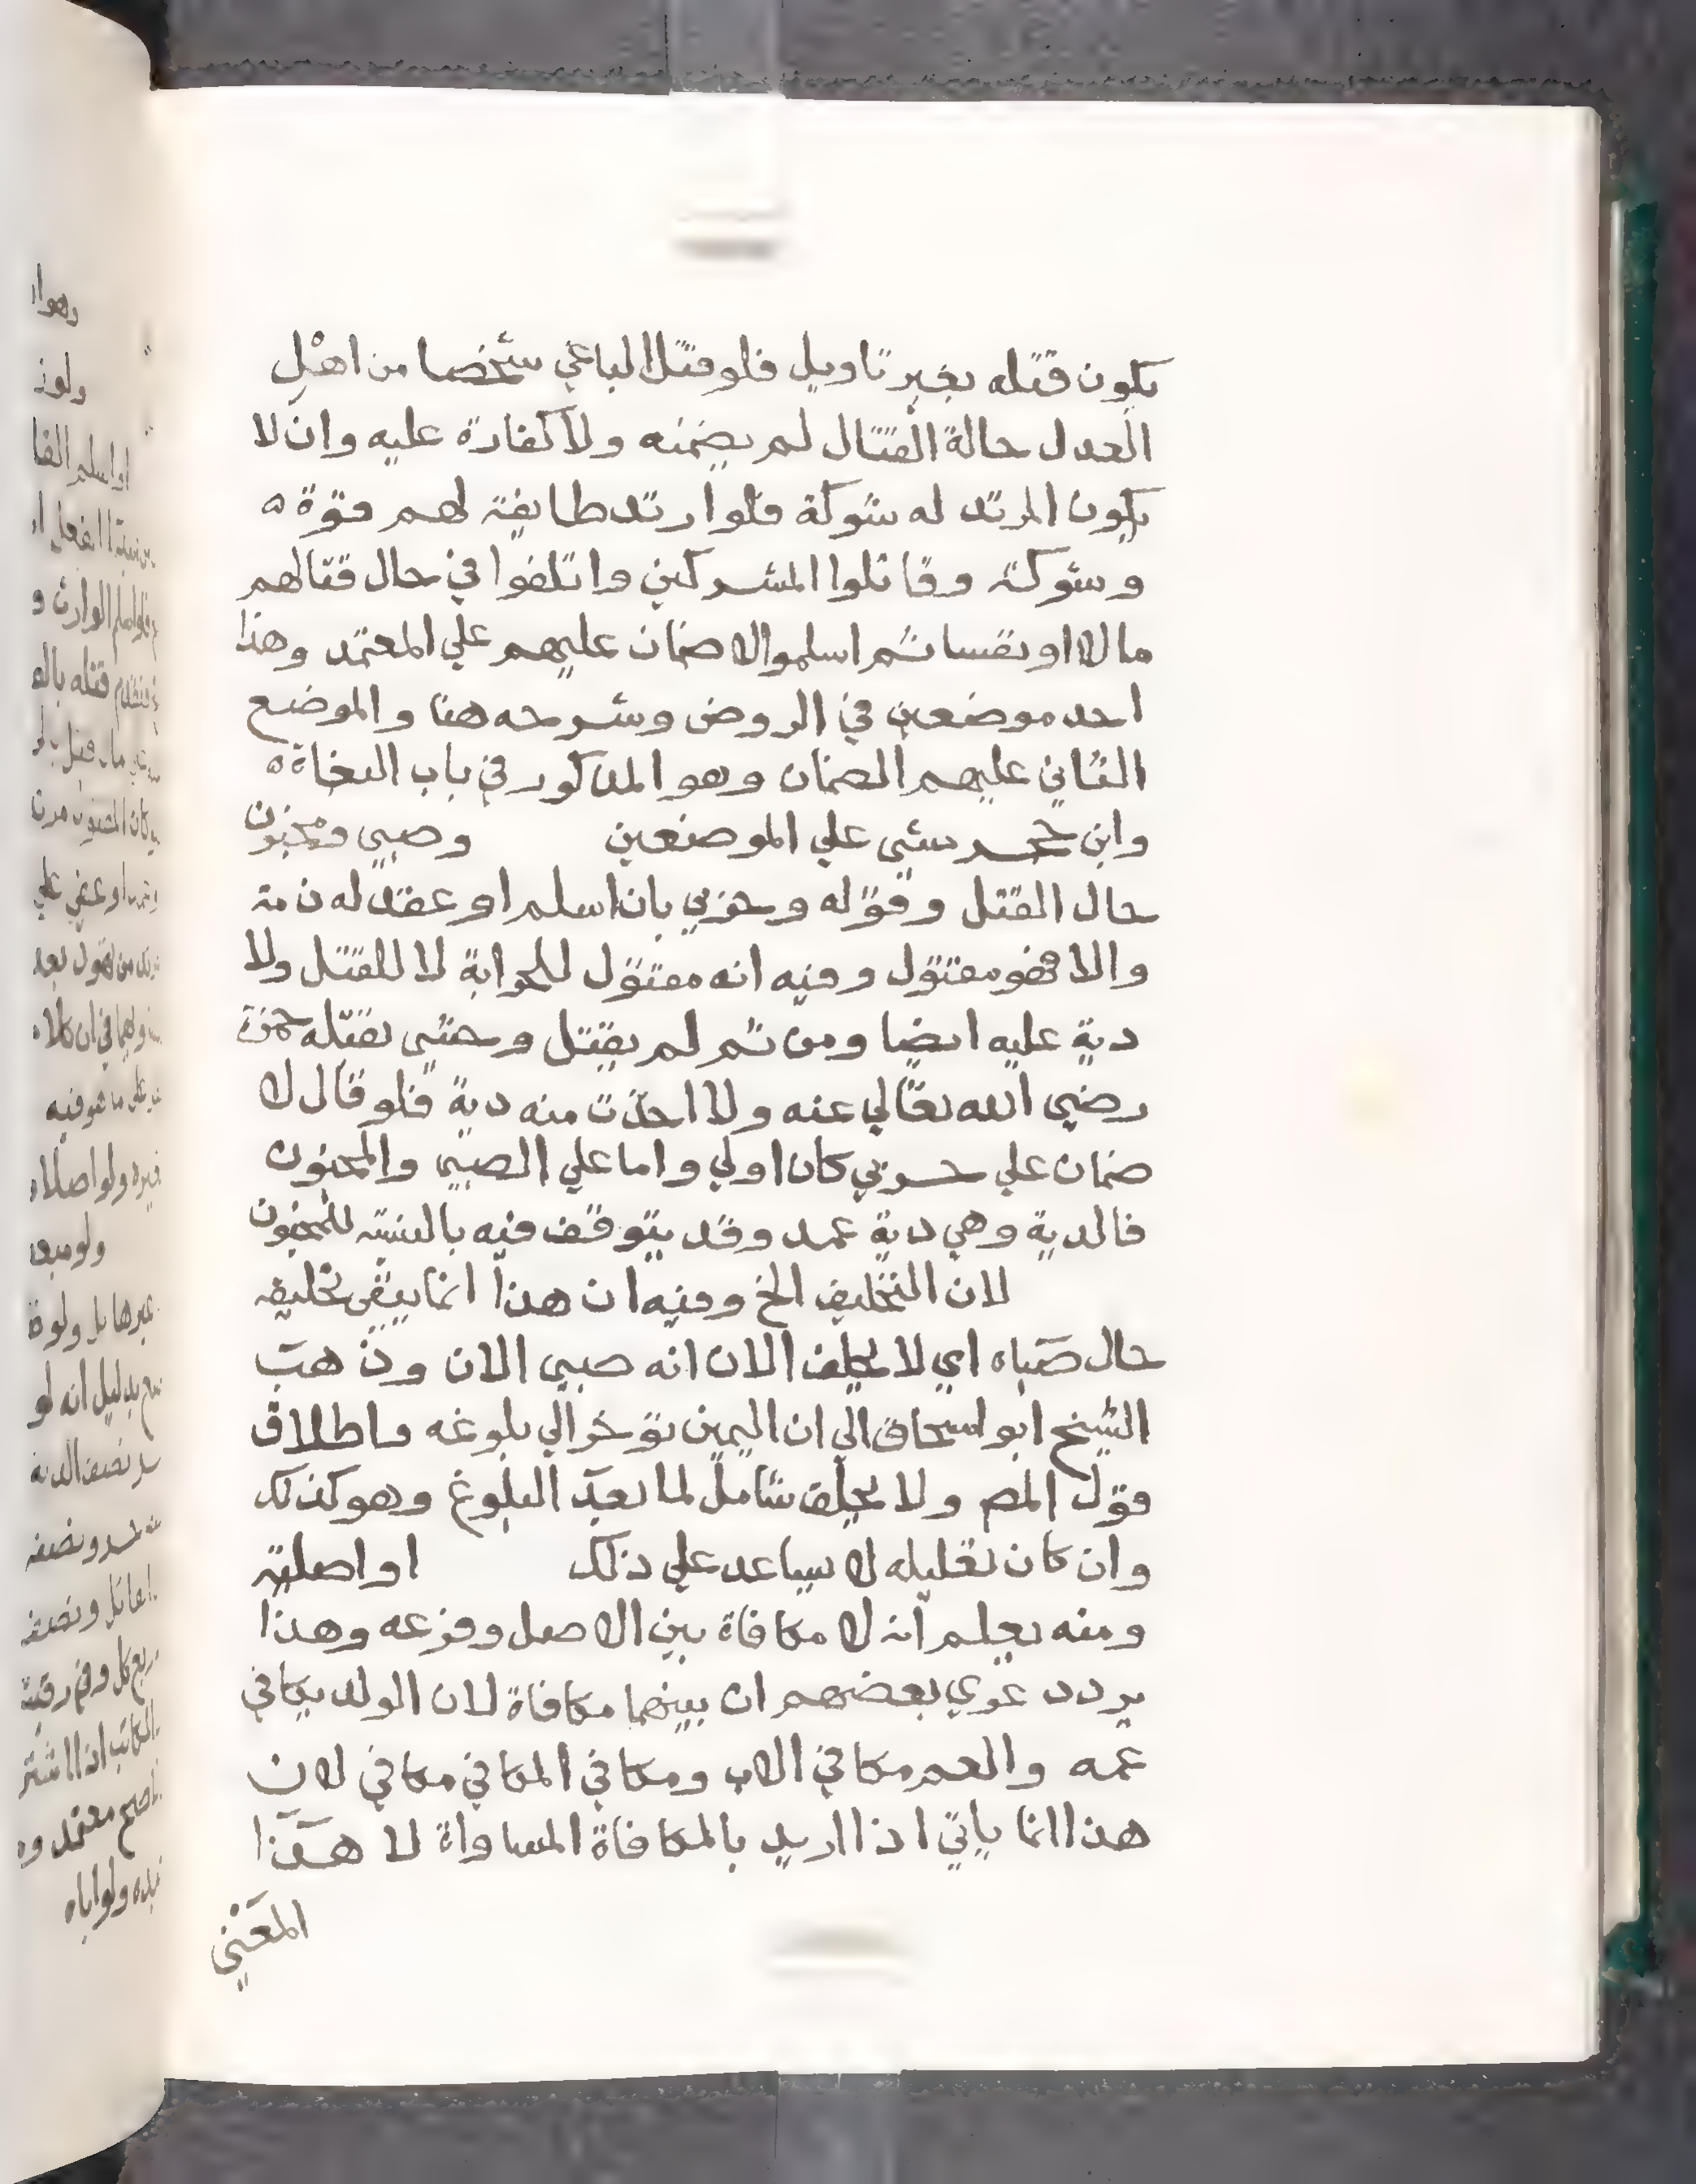 يكون قتله بغير تاويل فلو قتل الباغي شخصا من اهل
العدل حالة القتال لم يضمنه ولا كفارة عليه وان لا
يكون المرتد له شوكة فلو ارتد طايفة لهم قوة ه
وشوكة وقاتلوا المشركين واتلفوا في حال قتالهم
مالا او نفسا ثم اسلموا لا ضمان عليهم علي المعتمد وهذا
احد موضعين في الروض وشرحه هنا والموضع
الثاني عليهم الضمان وهو المذكور في باب البغاة ه
وابن حجر مشي علي الموضعين وصبي ومجنون
حال القتل وقوله وحربي بان اسلم او عقد له ذمة
والا فهو مقتول وفيه انه مقتول للحرابة لا للقتل ولا
دية عليه ايضا ومن ثم لم يقتل وحشي بقتله حمزة
رضي الله تعالي عنه ولا اخذت منه دية فلو قال لا
ضمان علي حربي كان اولي واما علي الصبي والمجنون
فالدية وهي دية عمد وقد يتوقف فيه بالنسبة للمجنون
لان التحليف الخ وفيه ان هذا انما ينفي تحليفه
حال صباه اي لا يحلف الان انه صبي الان وذهب
الشيخ ابو اسحاق الي ان اليمين تؤخر الي بلوغه واطلاق
قول المص ولا يحلف شامل لما بعد البلوغ وهو كذلك
وان كان تعليله لا يساعد علي ذلك او اصلية
ومنه يعلم انه لا مكافاة بين الاصل وفرعه وهذا
يرد دعوي بعضهم ان بينهما مكافاة لان الولد يكافي
عمه والعم مكافي الاب ومكافي المكافي مكافي لان
هذا انما ياتي اذا اريد بالمكافاة المساواة لا هذا
المعني